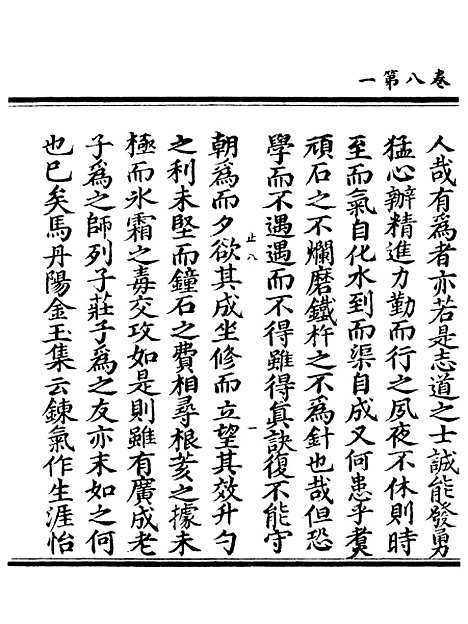 卷八第一
人哉有爲者亦若是志道之士誠能發勇
猛心辦精進力勤而行之夙夜不休則時
至而氣自化水到而渠自成又何患乎煑
頑石之不爛磨鐵杵之不爲針也哉但恐
學而不遇遇而不得雖得眞訣復不能守
止八 一
朝爲而夕欲其成坐修而立望其效升勺
之利未堅而鐘石之費相尋根荄之據未
極而氷霜之毒交攻如是則雖有廣成老
子爲之師列子莊子爲之友亦末如之何
也已矣馬丹陽金玉集云鍊氣作生涯怡